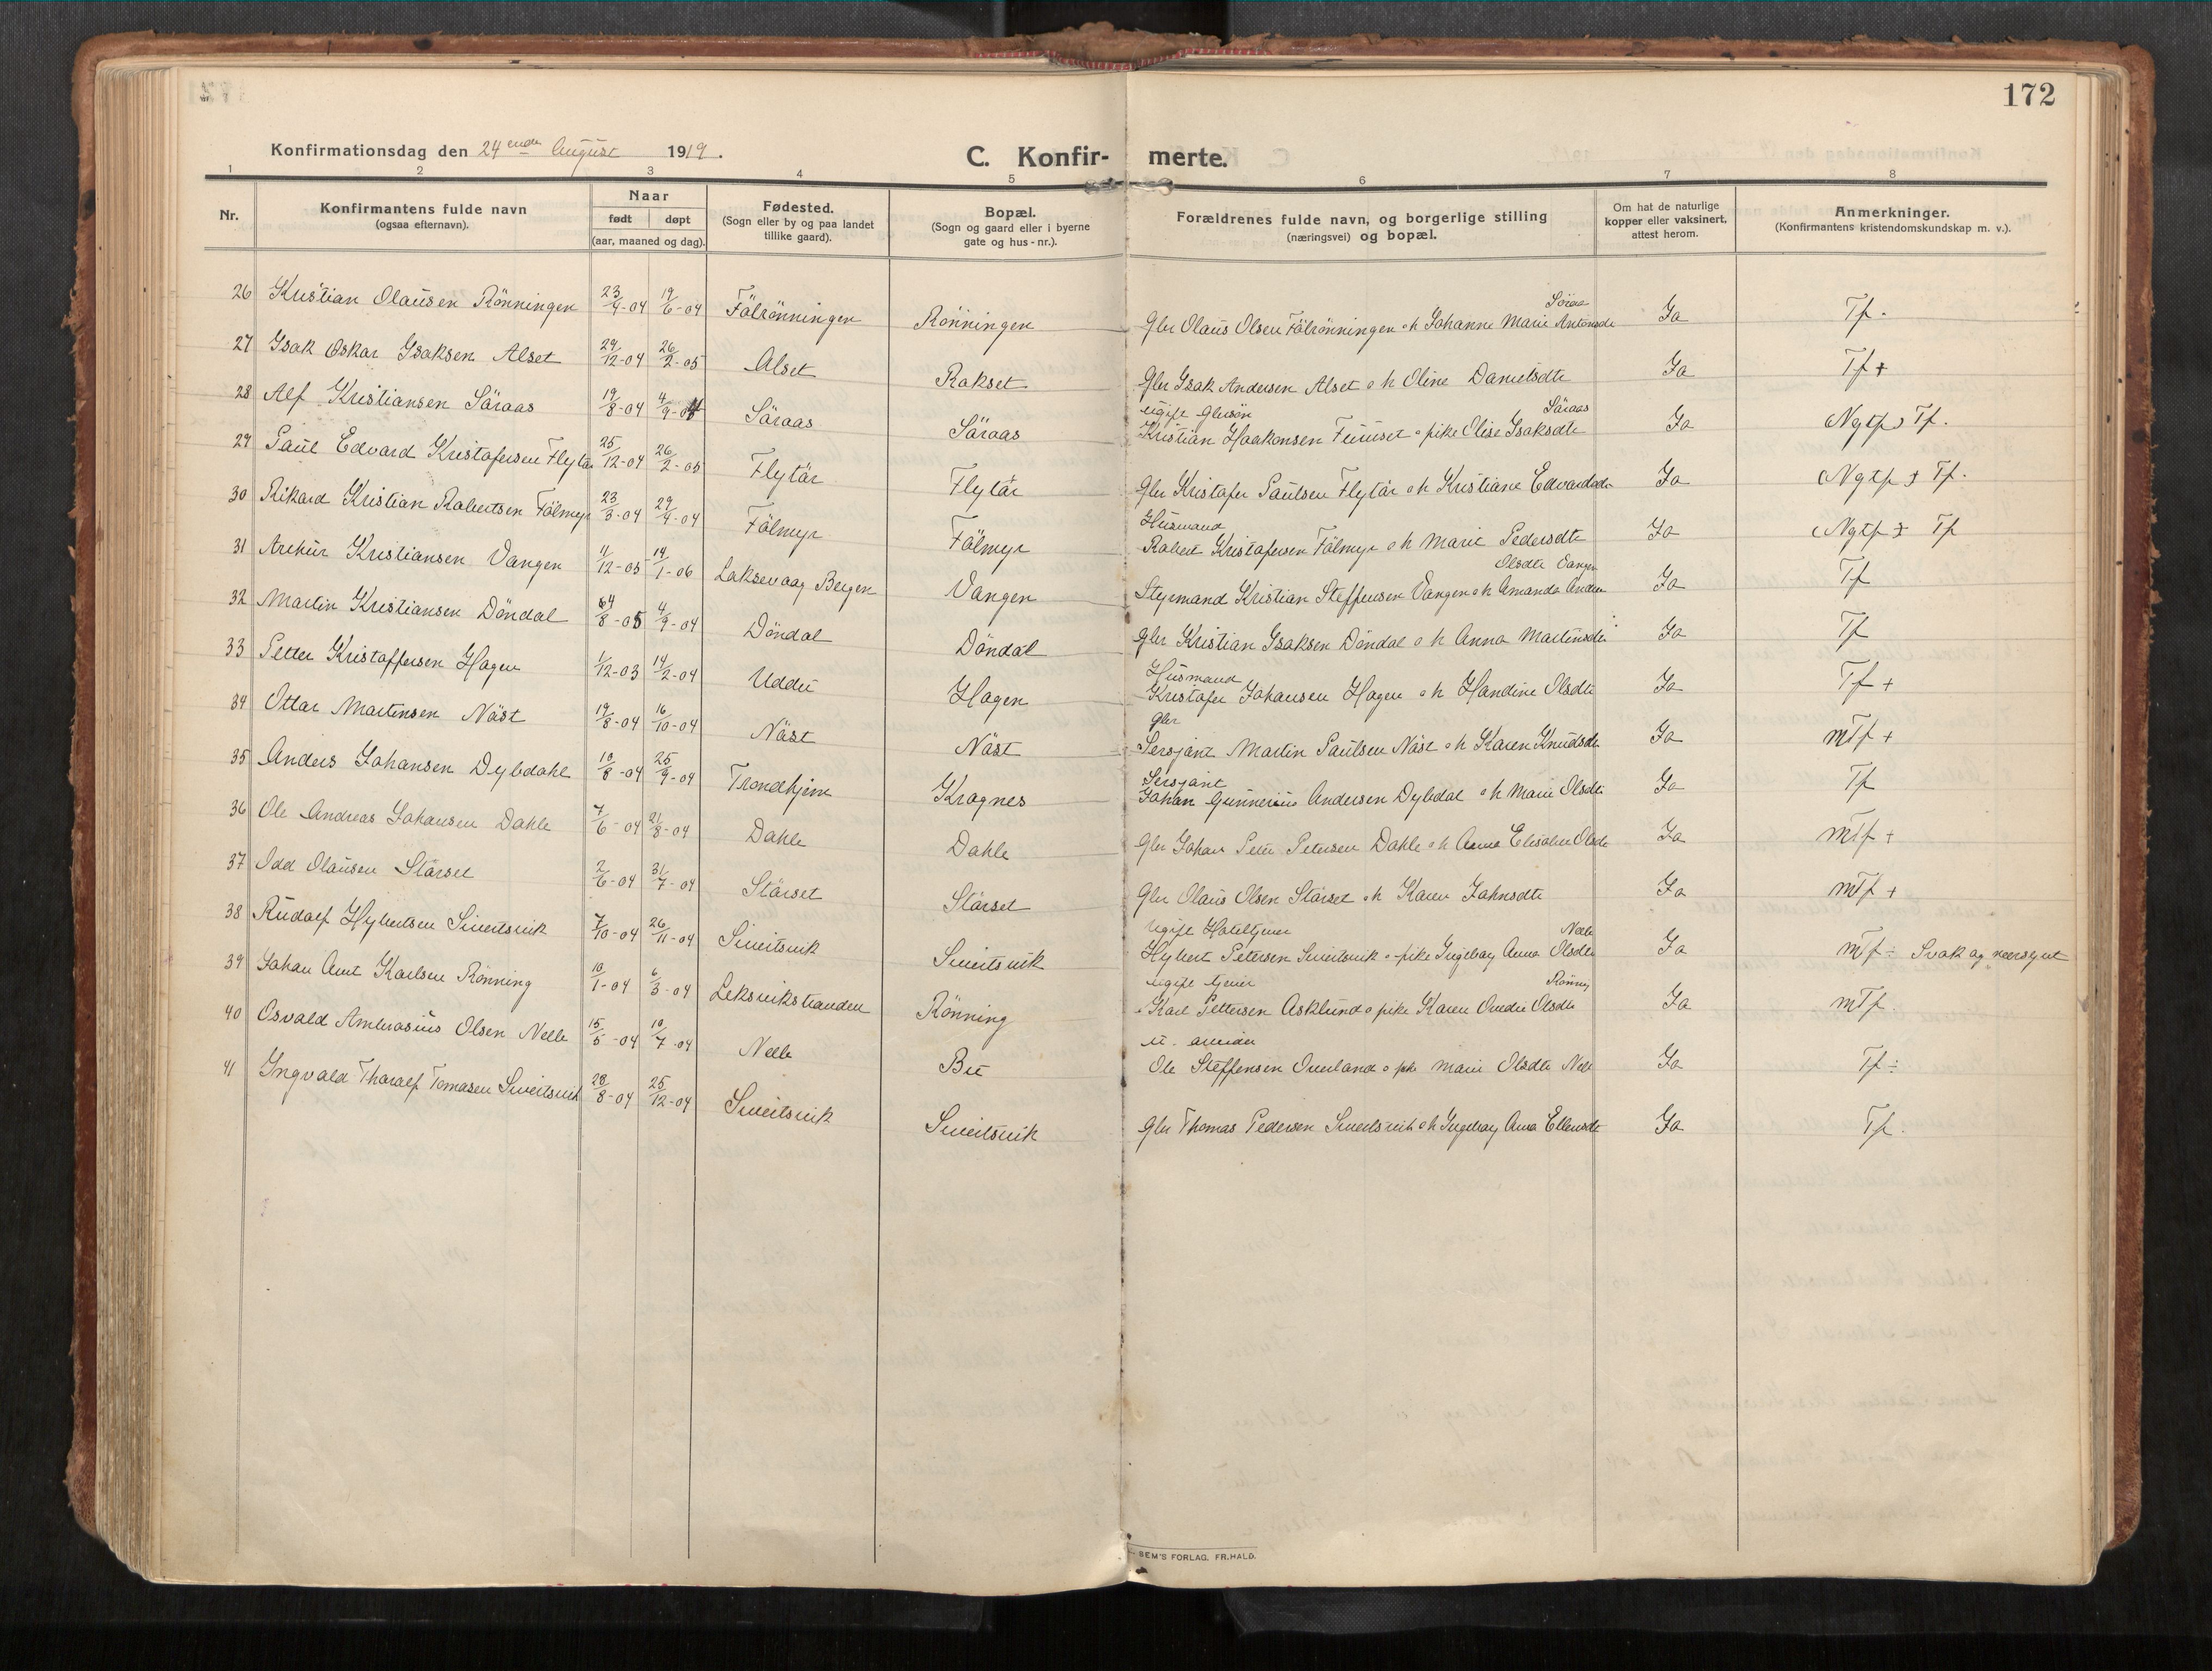 172
Konfirmationsdag den 24 ende August 1919.
C. Konfir- merte.
1 2 3 4 5 6 7 8
Nr.
Konfirmantens fulde navn
(ogsaa efternavn).
Naar
født døpt
(aar, maaned og dag).
Fødested.
(Sogn eller by og paa landet
tillike gaard).
Bopæl.
(Sogn og gaard eller i byerne
gate og hus-nr.).
Forældrenes fulde navn, og borgerlige stilling
(næringsvei) og bopæl.
Om hat de naturlige
kopper eller vaksinert,
attest herom.
Anmerkninger.
(Konfirmantens kristendomskundskap m. v.).
Söraa
26 Kristian Olausen Rönningen 23/4-04 19/6-04 Fölrönningen Rönningen Gbr Olaus Olsen Fölrönningen o h Johanne Marie Antonsdr Ja Tf.
27 Isak Oskar Isaksen Alset 29/12-04 26/2-05 Alset Rokset Gbr Isak Andersen Alset o h Oline Danielsdtr Ja Tf+
ugift Gbrsön Säraas
28 Alf Kristiansen Säraas 19/8-04 4/9-04 Säraas Säraas Kristian Haakonsen o pike Olise Isaksdtr Ja Ngtf Tf.
29 Paul Edvard Kristofersen Flytär 25/12-04 26/2-05 Flytär Flytär Gbr Kristofer Paulsen Flytär o h Kristiane Edvardsdr Ja Ngtf + Tf.
Husmand
30 Rikard Kristian Robertsen Fölmyr 23/3-04 29/4-04 Fölmyr Fölmyr Robert Kristofersen Fölmyr o h Marie Pedersdtr Ja Ngtf Tf
Olsdtr Vangen
31 Arthur Kristiansen Vangen 11/12-05 14/1-06 Laksevaag Bergen Vangen Styrmand Kristian Steffensen Vangen o h Amanda Ja Tf
32 Martin Kristiansen Döndal 8-05 4/9-04 Döndal Döndal Gbr Kristian Isaksen Döndal o h Anna Martinsdtr Ja Tf
Husmand
33 Petter Kristoffersen Hagen 1/12-03 14/2-04 Uddu Hagen Kristofer Johansen Hagen o h Handine Olsdtr Ja Tf +
Gbr
34 Ottar Martinsen Näst 19/8-04 16/10-04 Näst Näst Sersjant Martin Paulsen Näst o h Karen Knudsdtr Ja mTf +
Sersjant
35 Anders Johansen Dybdahl 10/8-04 25/9-04 Trondhjem Kragnes Johan Gunnerius Andersen Dybdal o h Marie Olsdtr Ja Tf
36 Ole Andreas Johansen Dahle 7/6-04 21/8-04 Dahle Dahle Gbr Johan Peter Petersen Dahle o h Anna Elisabet Olsdr Ja mTf +
37 Odd Olausen Störset 2/6-04 31/7-04 Störset Störset Gbr Olaus Olsen Störset o h Karen Johnsdtr Ja mTf +
ugift Hoteltjener Nelle
38 Rudolf Hybertsen Sivertsvik 7/10-04 26/11-04 Sivertsvik Sivertsvik Hybert Petersen Sivertsvik o pike Ingeborg Anna Olsdtr Ja mTf ÷ Svak og nærsynt
ugift tjener Rönning
39 Johan Arnt Karlsen Rönning 10/1-04 6/3-04 Leksvikstranden Rönning Karl Pettersen Asklund o pike Karen Ovedie Olsdtr Ja mTf.
u. arbeider
40 Osvald Ambrosius Olsen Nelle 15/5-04 10/7-04 Nelle Bu Ole Steffensen Overland o pike Marie Olsdtr Nelle Ja Tf ÷
41 Ingvald Tharalf Tomasen Sivertsvik 28/8-04 25/12-04 Sivertsvik Sivertsvik Gbr Thomas Pedersen Sivertsvik o h Ingeborg Anna Ellensdtr Ja Tf.
SEM'S FORLAG, FR.HALD.